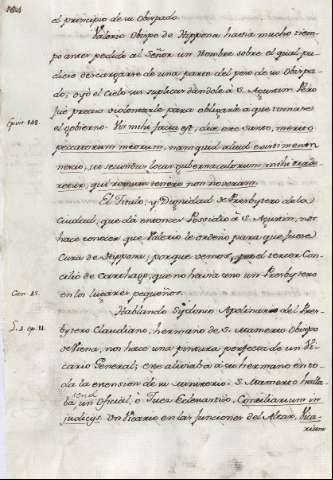 el principio de su Obispado.
Valerio Obispo de Hippona havia mucho tiem-
po antes pedido al Señor un Hombre sobre el qual pu-
diese descargarse de una parte del peso de su Obispa-
do; oyó el Cielo su suplica dandole à S. Agustin. Pero
fue preciso violentarle para obligarle a que tomase
el govierno.
Epist. 148.
Vis mihi facta est, dice este Santo, merito
peccatorum meorum, nam quid aliud existimem
nescio, ut secundus locus gubernaculorum mihi trade-
retur, qui remum tenere non noveram.
El Titulo y Dignidad de Presbytero de la
Ciudad, que dá entonces Possidio à S. Agustin, nos
hace conocer que Valerio le ordenó para que fuese
Cura de Hippona; porque vemos, por el tercer Con-
cilio de Carthago, que no havia sino un Presbytero
Can. 25.
en los lugares pequeños.
L. 4. ep. 11.
Hablando Sydonio Apolinario del Pres-
bytero Claudiano, hermano de S. Mamerto Obispo
de Viena, nos hace una pintura perfecta de un Vi-
cario General; este aliviaba a su hermano en to-
da la extension de su ministerio. S. Mamerto
ba en el un Oficial, ò Juez Eclesiastico, Consiliarium in
judiciis. Un Vicario en las funciones del Altar, Vica-
rium